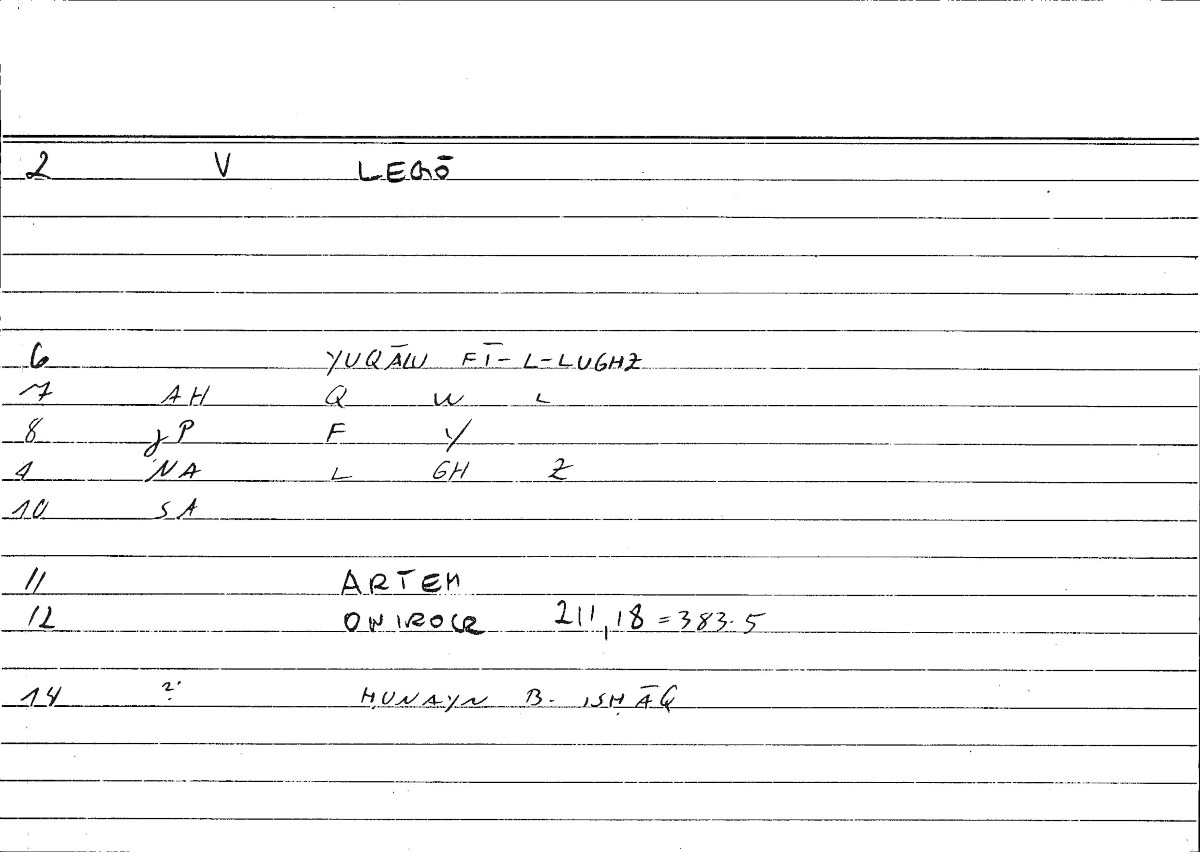 2 V LEGŌ
6 YUQĀLU FĪ-L-LUGHZ
7 AH Q W L
8 jP F Y
9 NA L GH Z
10 SA
11 ARTEM
12 ONIROCR 211,18 = 383.5
14 ? ḤUNAYN B. ISḤĀQ